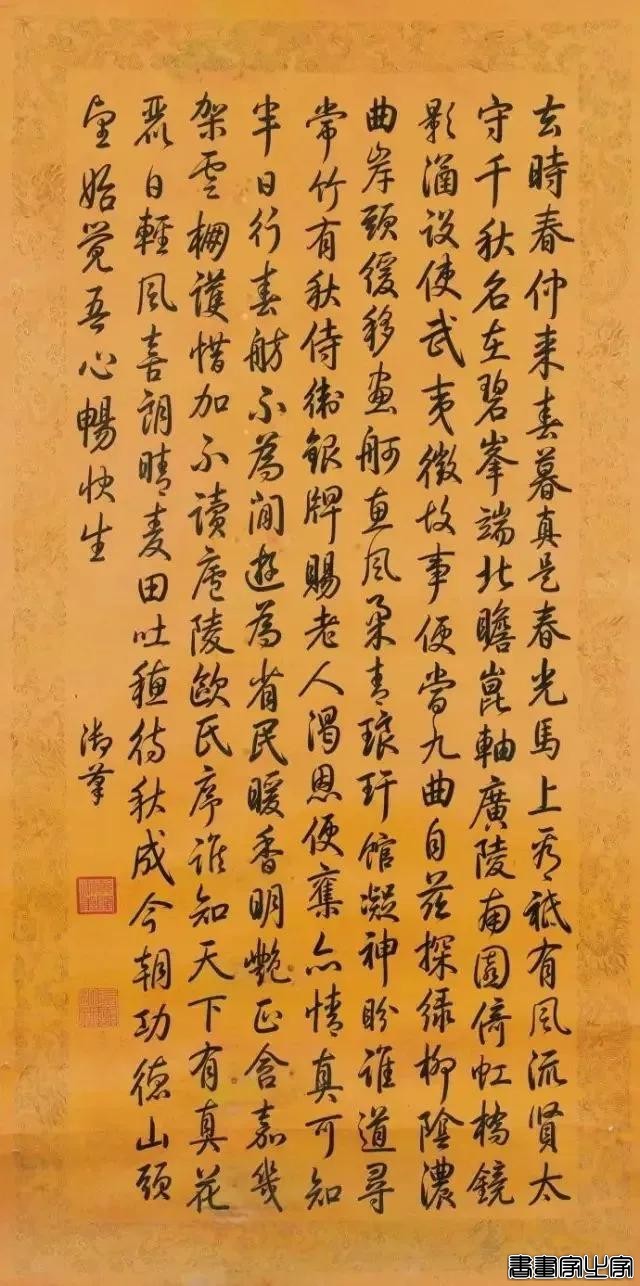 去時春仲来春暮真是春光馬上看祗有風流賢太
守千秋名在碧峯端北瞻崑軸廣陵南園倚虹橋鏡
影涵设使武夷徵故事便當九曲自兹探绿柳陰濃
曲岸頭缓移画舸直風柔青琅玕馆凝神盼谁道尋
常竹有秋侍衛銀牌賜老人渴恩便奮亦情真可知
半日行春舫不為閒遊為省民暖香明艷正含嘉幾
架雲棚護惜加不讀廬陵歐氏序谁知天下有真花
麗日輕風喜朗晴麦田吐穗待秋成今朝功德山頭
望始觉吾心暢快生
御筆
書畫家必字